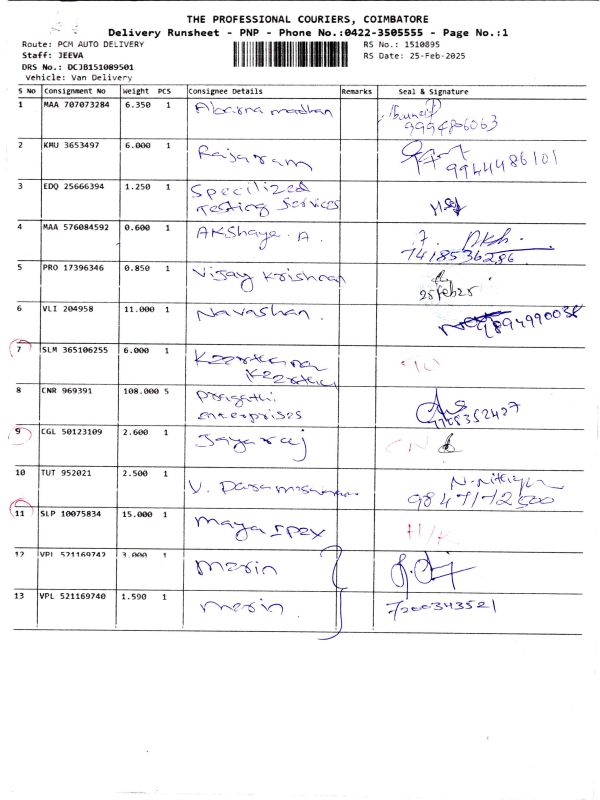 THE PROFESSIONAL COURIERS, COIMBATORE
Delivery Runsheet - PNP - Phone No.:0422-3505555 - Page No.:1
Route: PCM AUTO DELIVERY RS No.: 1510895
Staff: JEEVA RS Date: 25-Feb-2025
DRS No.: DCJB151089501
Vehicle: Van Delivery
S No Consignment No Weight PCS Consignee Details Remarks Seal & Signature
1 MAA 707073284 6.350 1 Abarna madhan
9994806063
2 KMU 3653497 6.000 1 Rajaram 9944486101
3 EDQ 25666394 1.250 1 Specilized
Testing Services
4 MAA 576084592 0.600 1 Akshaya. A.
7418536286
5 PRO 17396346 0.850 1 Vijay Krishnan
25Feb25
6 VLI 204958 11.000 1 Navashan.
9894990038
7 SLM 365106255 6.000 1
8 CNR 969391 108.000 5 Pragathi
enterprises
9 CGL 50123109 2.600 1 Jayaraj CN
10 TUT 952021 2.500 1
9847172500
11 SLP 10075834 15.000 1 Maya Ipex
12 VPL 521169742 3.000 1 Merin
13 VPL 521169740 1.590 1 Merin 7200343521